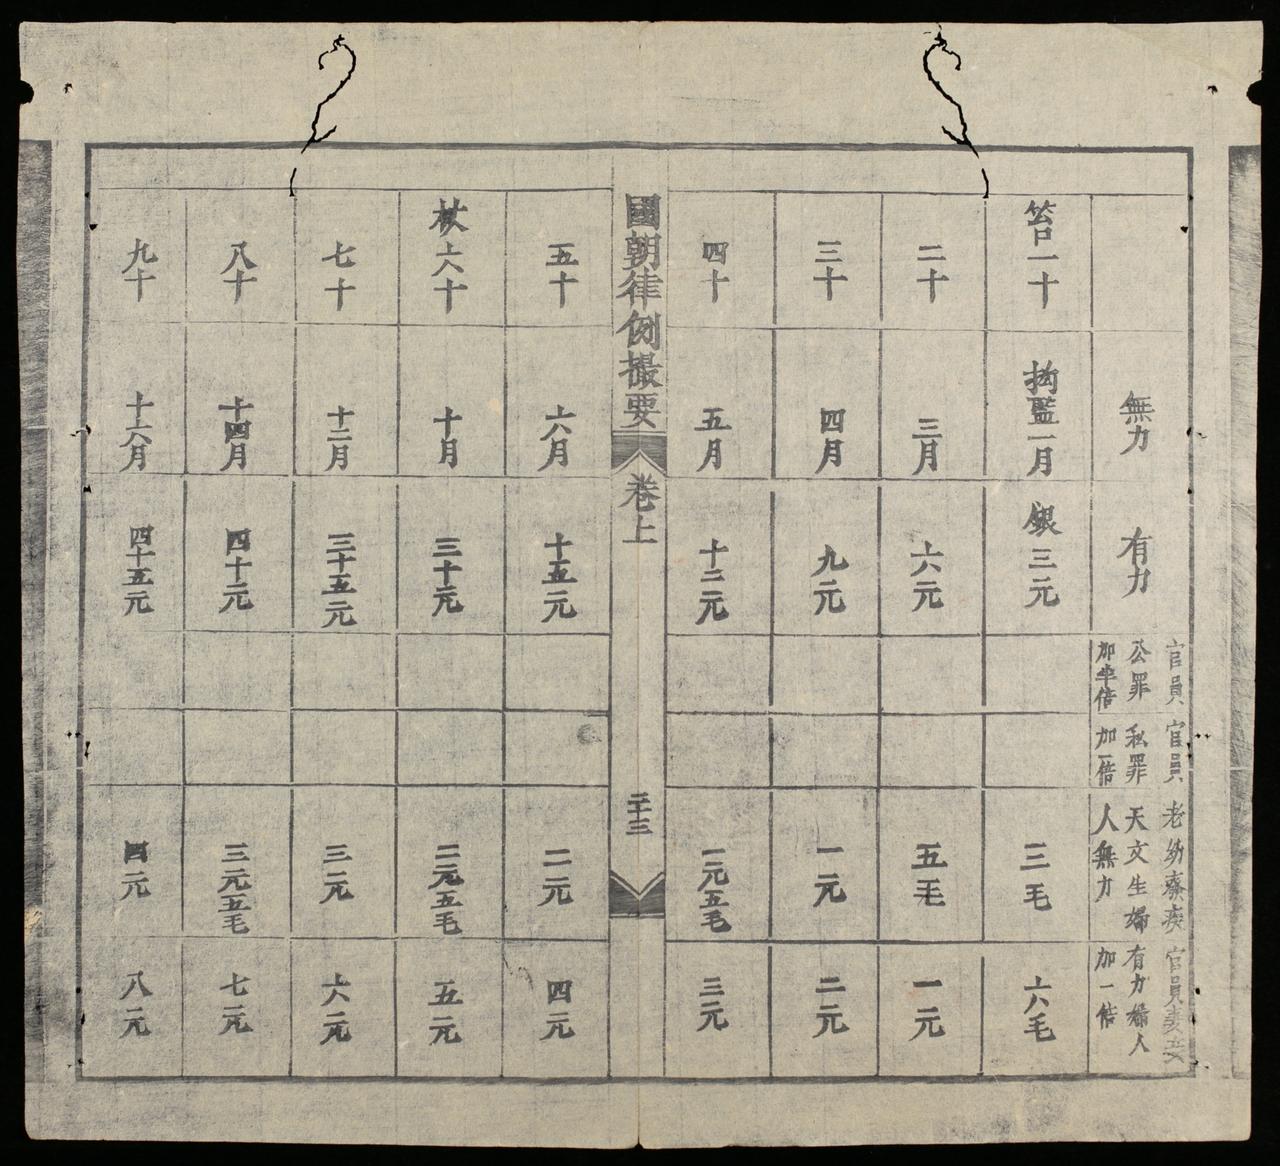 無力
有力
官員
公罪
加半倍
官員
私罪
加一倍
老幼癈疾
天文生婦
人無力
官員妻妾
有力婦人
加一倍
笞一十
拘監一月
銀三元
三毛
六毛
二十
三月
六元
五毛
一元
三十
四月
九元
一元
二元
四十
五月
十二元
一元五毛
三元
國朝律例撮要
卷上
二十三
五十
六月
十五元
二元
四元
杖六十
十月
三十元
二元五毛
五元
七十
十二月
三十五元
三元
六元
八十
十四月
四十元
三元五毛
七元
九十
十六月
四十五元
四元
八元